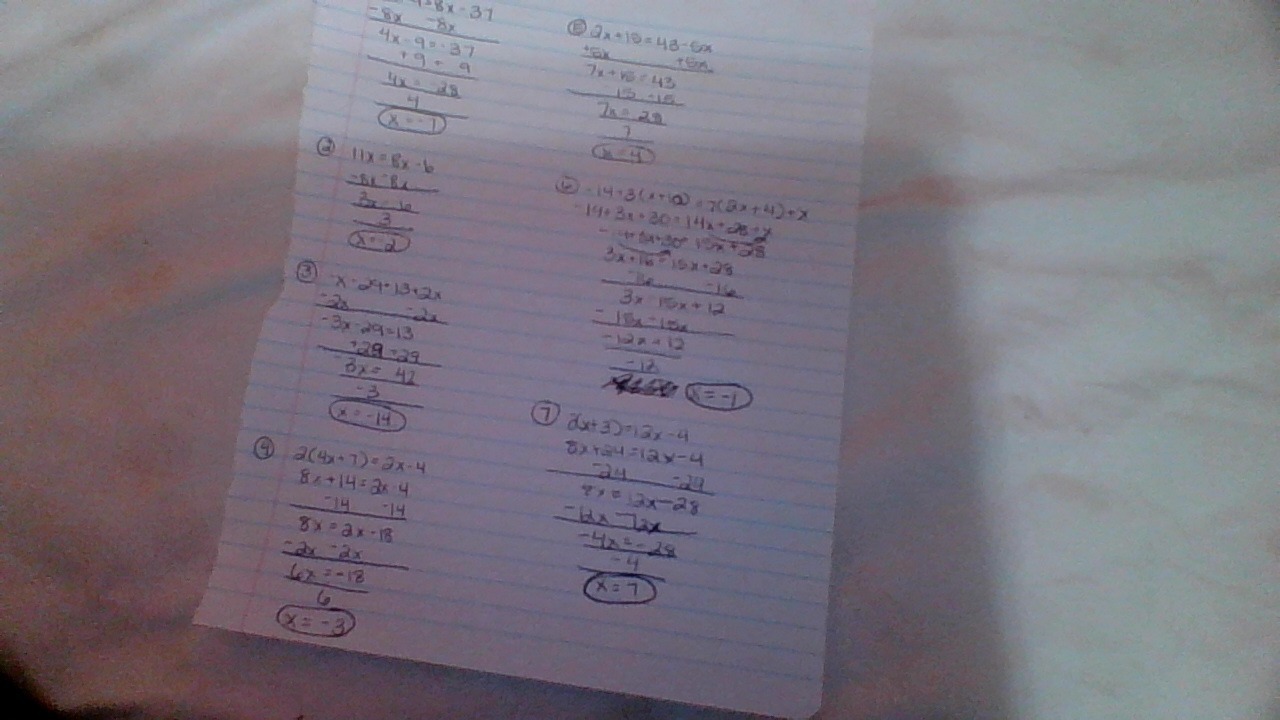 = 8x - 37
-8x -8x
4x - 9 = -37
+9 = 9
4x = -28
4
x = -7
② 11x = 8x - 6
-8x -8x
3x = -6
3
x = -2
③ -x - 29 = 13 + 2x
-2x -2x
-3x - 29 = 13
+29 +29
-3x = 42
-3
x = -14
④ 2(4x + 7) = 2x - 4
8x + 14 = 2x - 4
-14 -14
8x = 2x - 18
-2x -2x
6x = -18
6
x = -3
⑤ 2x + 15 = 43 - 5x
+5x +5x
7x + 15 = 43
15 -15
7x = 28
7
x = 4
⑥ -14 + 3(x + 10) = 7(2x + 4) + x
-14 + 3x + 30 = 14x + 28 + x
15x + 28
3x + 16 = 15x + 28
-16 -16
3x 15x + 12
- 15x - 15x
-12x + 12
-12
x = -1
⑦ (x+3) = 12x - 4
8x + 24 = 12x - 4
-24 -24
8x = 12x - 28
-12x -12x
-4x = -28
-4
x = 7